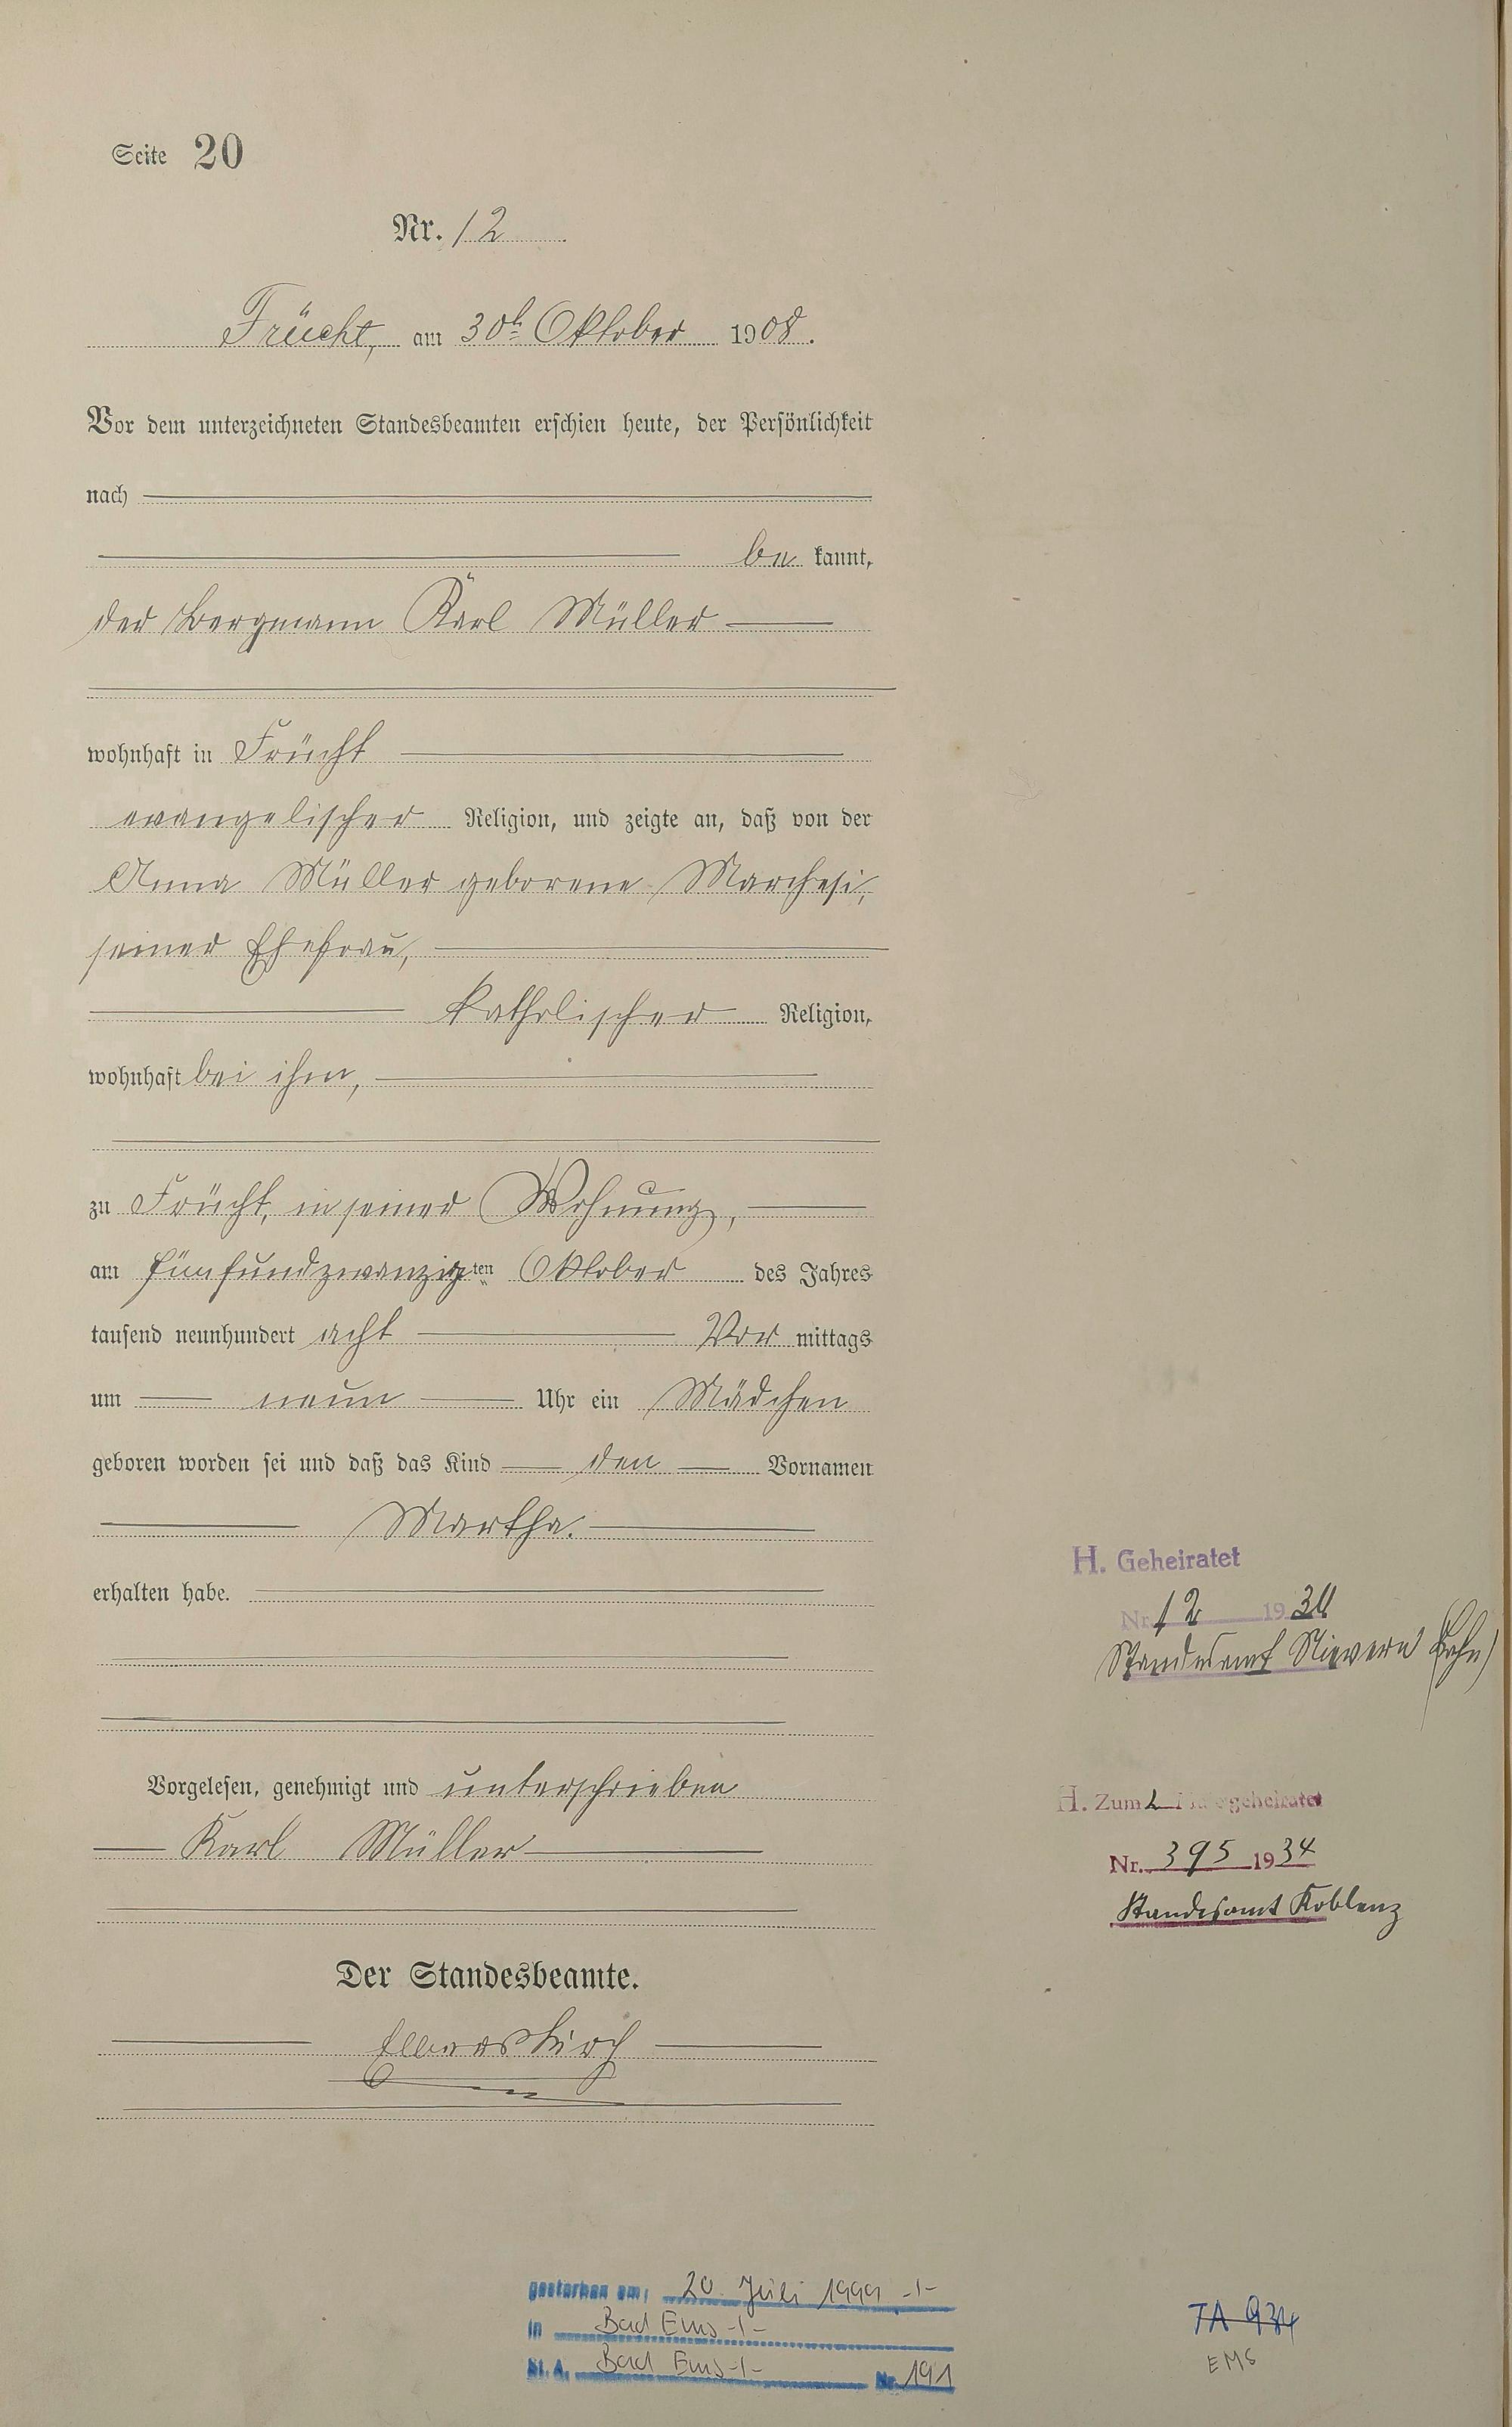 Seite 20
Nr. 12
Frücht, am 30ten Oktober 1908.
Vor dem unterzeichneten Standesbeamten erschien heute, der Persönlichkeit
nach
be kannt,
der Bergmann Karl Müller
wohnhaft in Frücht
evangelischer Religion, und zeigte an, daß von der
Anna Müller geborene Marchesi,
seiner Ehefrau,
katholischer Religion,
wohnhaft bei ihm,
zu Frücht, in seiner Wohnung,
am fünfundzwanzigten Oktober des Jahres
tausend neunhundert acht Vor mittags
um neun Uhr ein Mädchen
geboren worden sei und daß das Kind den Vornamen
Martha.
erhalten habe.
Vorgelesen, genehmigt und unterschrieben
Karl Müller
Der Standesbeamte.
H. Geheiratet
Nr. 12 19
Standesamt Nievern (Lahn)
H. Zum 2. Male geheiratet
Nr. 395 1934
Standesamt Koblenz
gestorben am: 20. Juli 1999 -/-
in Bad Ems -/-
St. A. Bad Ems -/- Nr. 191
TA
EMS